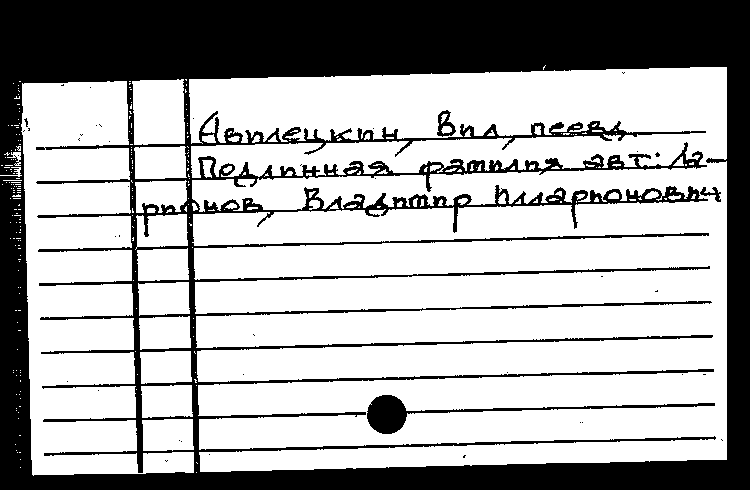 Авилецкий, Вил, псевд.
Подлинная фамилия авт.: Ла-
рионов, Владимир Илларионович